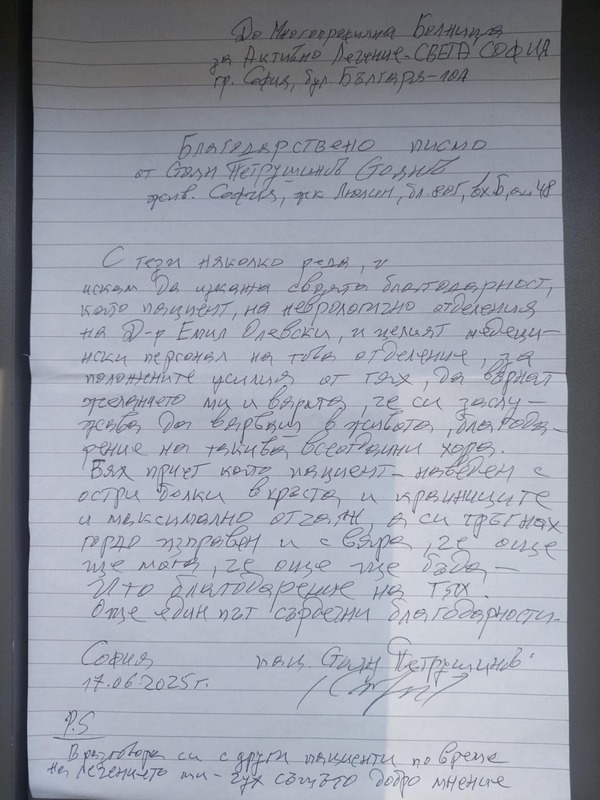 До Многопрофилна Болница
за Активно Лечение-СВЕТА СОФИЯ
гр. София, бул. България-104
Благодарствено писмо
от Стоян Петрушинов Стоянов
жив. София, жк Люлин, бл.805, вх.Б, ап.48
С тези няколко реда, и
искам да изкажа своята благодарност,
като пациент, на неврологично отделения
на Д-р Емил Олевски, и целият медеци-
нски персонал на това отделение, за
положените усилия от тях, да върнат
желанието ми и вярата, че си заслу-
жава да вярваш в живота, благода-
рение на такива всеотдайни хора.
Бях приет като пациент-наведен с
остри болки в кръста и крайниците
и максимално отчаян, а си тръгнах
гордо изправен и с вяра, че още
ще мога, че още ще бъда-
И то благодарение на тях.
Още един път сърдечни благодарности.
София пац. Стоян Петрушинов
17.06.2025г.
P.S
В разговора си с други пациенти по време
на лечението ми-чух същото добро мнение